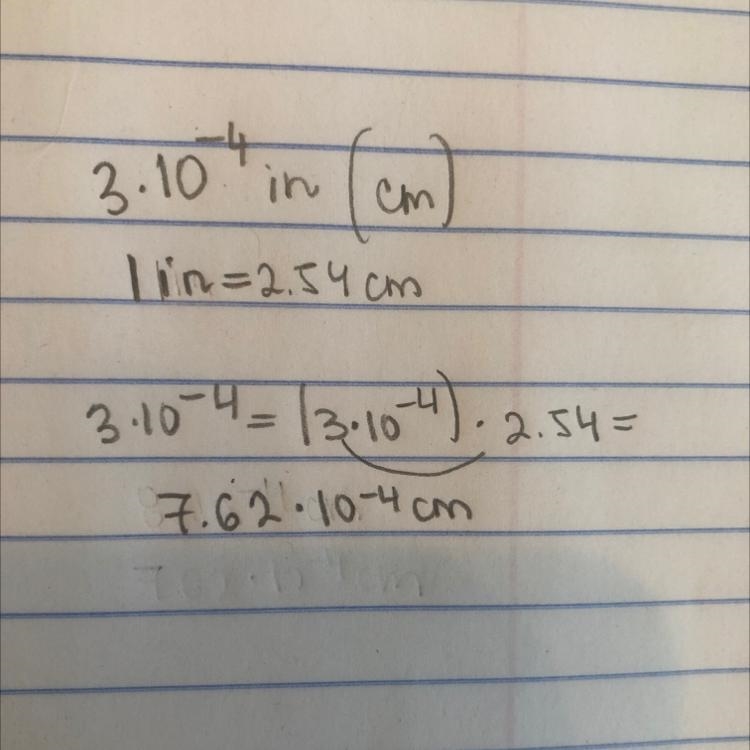 3·10⁻⁴ in (cm)
1 in = 2.54 cm
3·10⁻⁴ = (3·10⁻⁴) · 2.54 =
7.62·10⁻⁴ cm